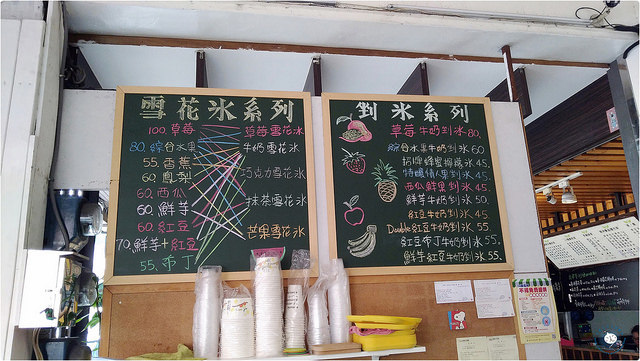 雪花氷系列
100. 草莓
草莓雪花氷
80. 綜合水果
牛奶雪花氷
55. 香蕉
60. 鳳梨
巧克力雪花氷
60. 西瓜
60. 鮮芋
抹茶雪花氷
60. 紅豆
70. 鮮芋+紅豆
芒果雪花氷
55. 布丁
剉氷系列
草莓牛奶剉氷 80.
綜合水果牛奶剉氷 60
招牌蜂蜜檸檬氷 45.
特暖情人果剉氷 45.
西瓜鮮果剉氷 45.
鮮芋牛奶剉氷 50.
紅豆牛奶剉氷 45
Double 紅豆牛奶剉氷 55
紅豆布丁牛奶剉氷 55.
鮮芋紅豆牛奶剉氷 55.